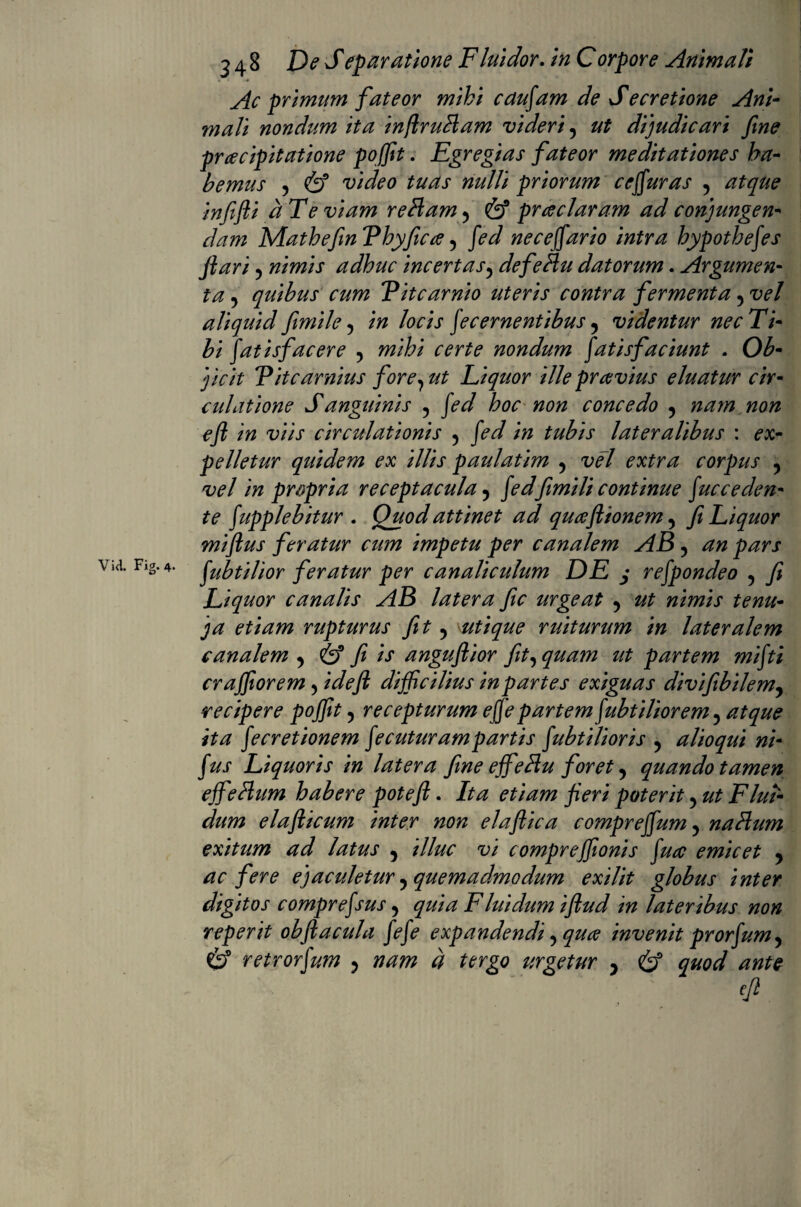 348 De Separatione Fluidor. in Corpore Animali
Ac primum fateor mihi cauſam de Secretione Ani-
mali nondum ita inſtructam videri, ut dijudicari ſine
præcipitatione poſſit. Egregias fateor meditationes ha-
bemus, & video tuas nulli priorum ceſſuras, atque
inſiſti à Te viam rectam, & præclaram ad conjungen-
dam Matheſin Phyſicæ, ſed neceſſario intra hypotheſes
ſtari, nimis adhuc incertas, defectu datorum. Argumen-
ta, quibus cum Pitcarnio uteris contra fermenta, vel
aliquid ſimile, in locis ſecernentibus, videntur nec Ti-
bi ſatisfacere, mihi certe nondum ſatisfaciunt. Ob-
jicit Pitcarnius fore, ut Liquor ille prævius eluatur cir-
culatione Sanguinis, ſed hoc non concedo, nam non
eſt in viis circulationis, ſed in tubis lateralibus: ex-
pelletur quidem ex illis paulatim, vel extra corpus,
vel in propria receptacula, ſed ſimili continue ſucceden-
te ſupplebitur. Quod attinet ad quæſtionem, ſi Liquor
miſtus feratur cum impetu per canalem AB, an pars
Vid. Fig. 4.
ſubtilior feratur per canaliculum DE; reſpondeo, ſi
Liquor canalis AB latera ſic urgeat, ut nimis tenu-
ja etiam rupturus ſit, utique ruiturum in lateralem
canalem, & ſi is anguſtior ſit, quam ut partem miſti
craſſiorem, ideſt difficilius in partes exiguas diviſibilem,
recipere poſſit, recepturum eſſe partem ſubtiliorem, atque
ita ſecretionem ſecuturam partis ſubtilioris, alioqui ni-
ſus Liquoris in latera ſine effectu foret, quando tamen
effectum habere poteſt. Ita etiam fieri poterit, ut Flui-
dum elaſticum inter non elaſtica compreſſum, nactum
exitum ad latus, illuc vi compreſſionis ſuæ emicet,
ac fere ejaculetur, quemadmodum exilit globus inter
digitos compreſsus, quia Fluidum iſtud in lateribus non
reperit obſtacula ſeſe expandendi, quæ invenit prorſum,
& retrorſum, nam à tergo urgetur, & quod ante
eſt